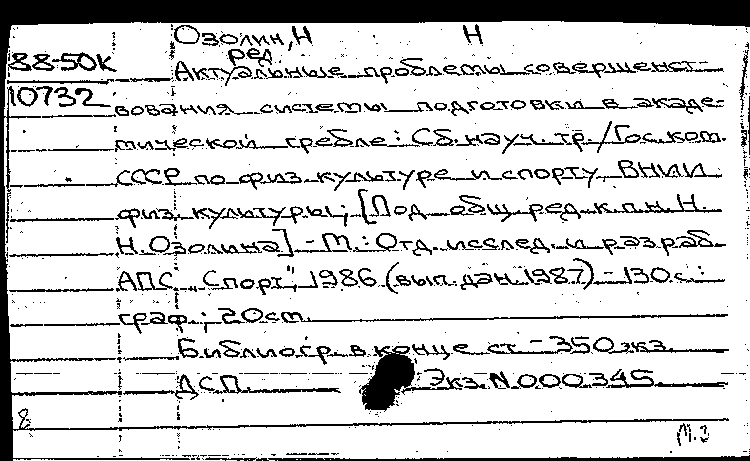 Озолин, Н Н
ред
88-50К
Актуальные проблемы совершенст-
10732
вования системы подготовки в акаде-
мической гребле: Сб. науч. тр. / Гос. ком.
СССР по физ. культуре и спорту. ВНИИ
физ. культуры; [Под общ. ред. к.п.н. Н.
Н. Озолина] - М.: Отд. исслед. и разраб.
АПС "Спорт", 1986 (вып. дан. 1987) - 130 с.:
граф.; 20 см.
Библиогр. в конце ст. - 350 экз.
ДСП. Экз. N 000345.
8
М.З